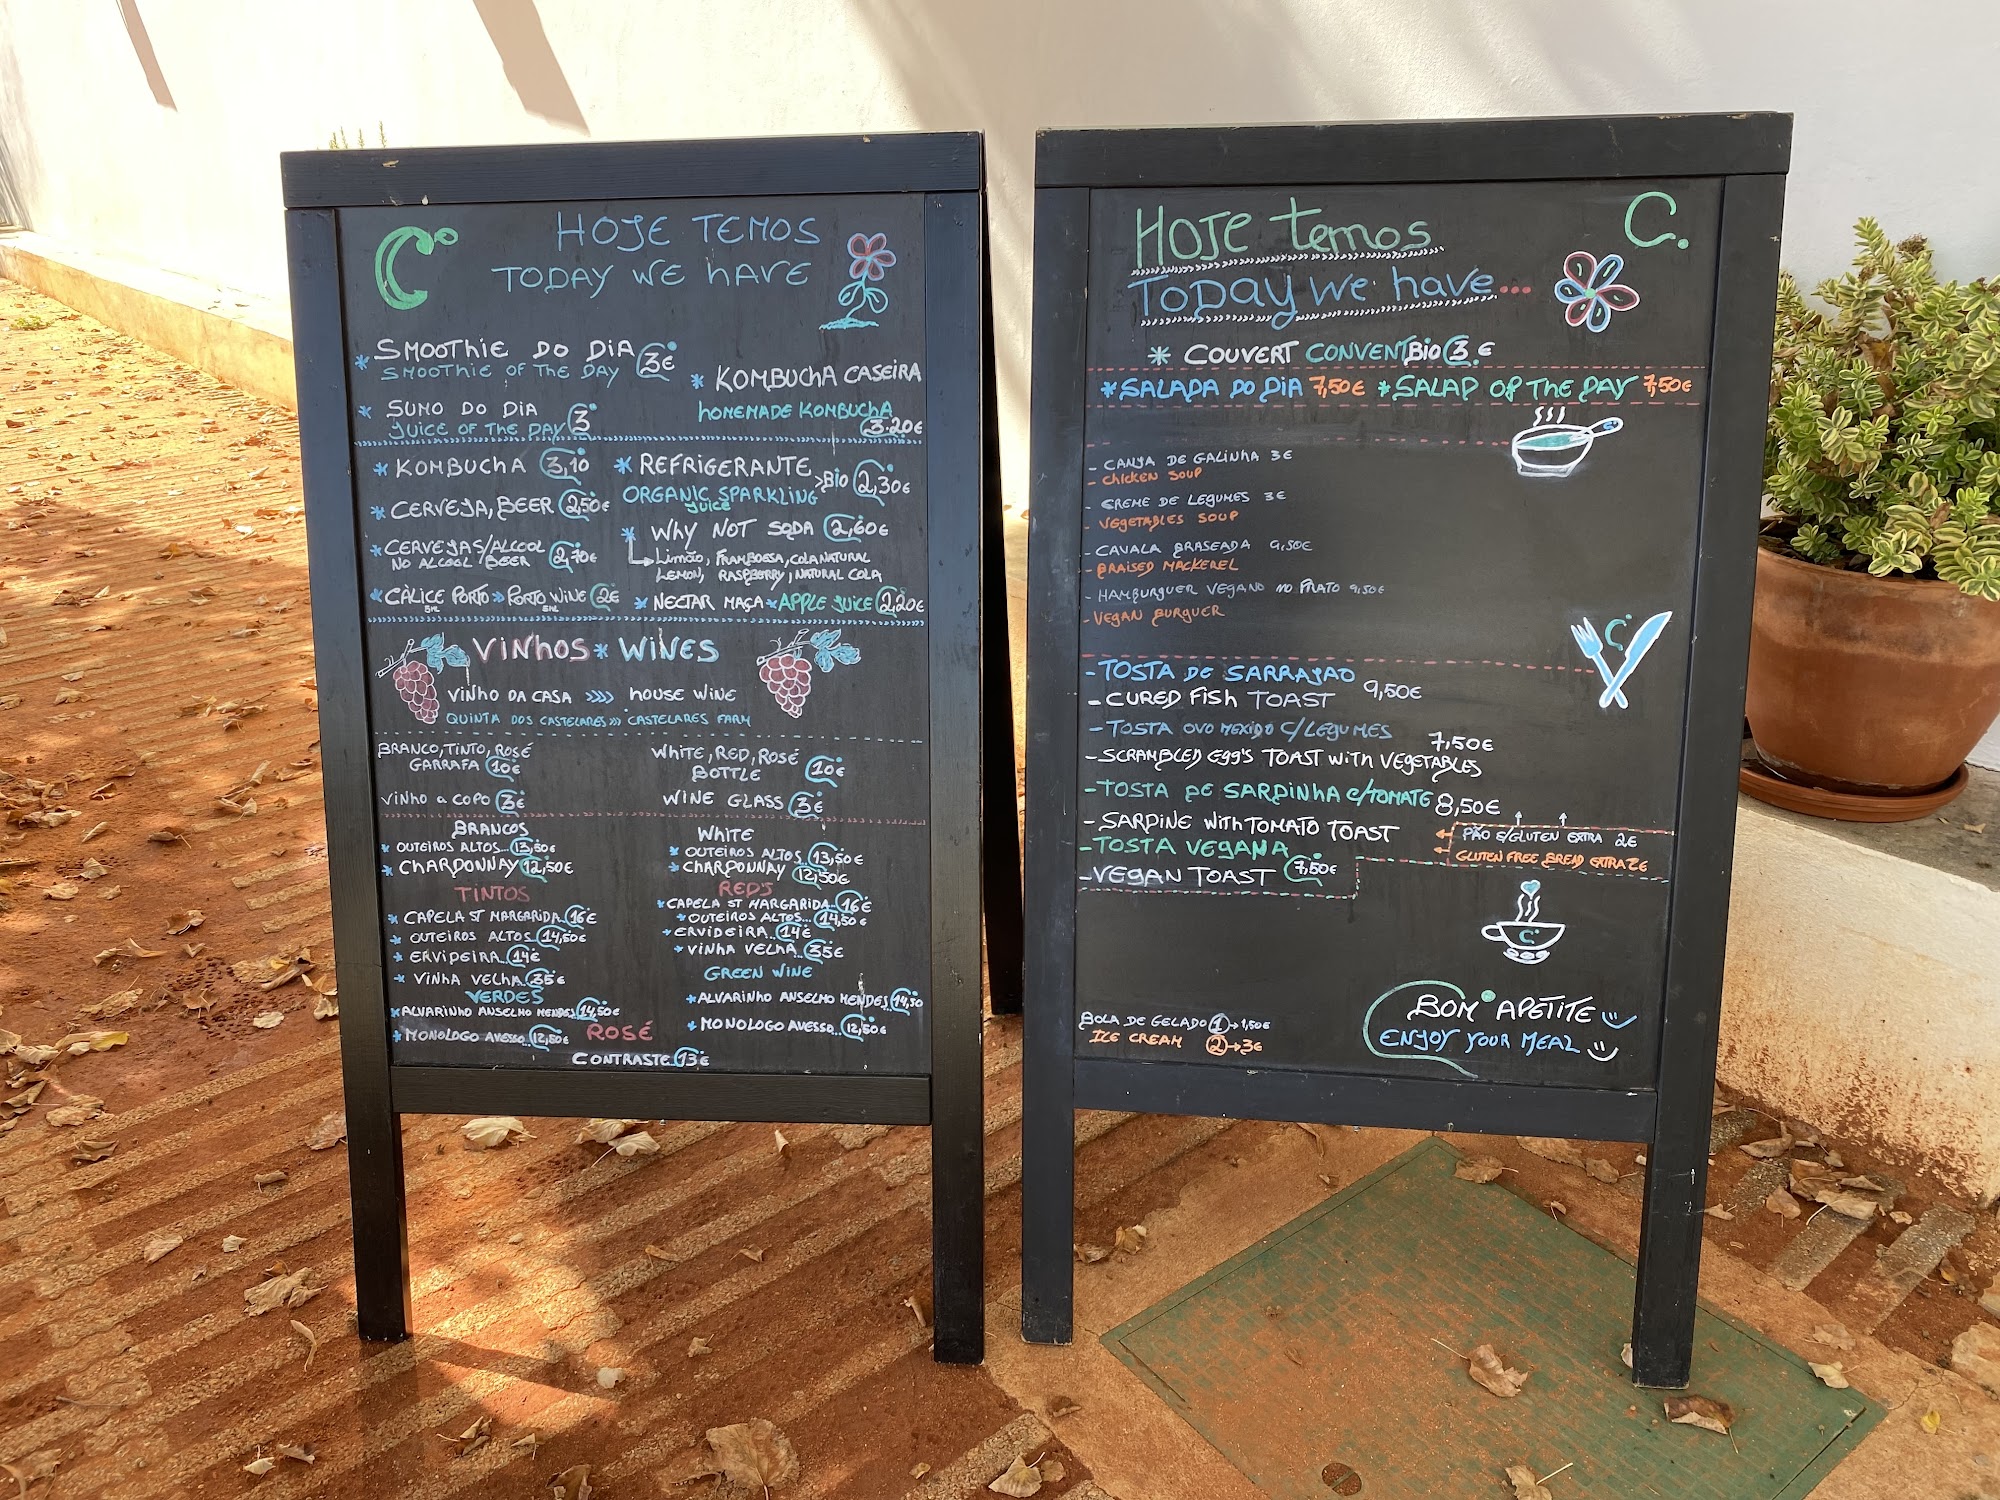 C
HOJE TEMOS
TODAY WE HAVE
* SMOOTHIE DO DIA 3€
SMOOTHIE OF THE DAY
* SUMO DO DIA
JUICE OF THE DAY 3
* KOMBUCHA CASEIRA
HOMEMADE KOMBUCHA
3.20€
* KOMBUCHA 3,10
* CERVEJA, BEER 2,50€
* CERVEJAS/ALCOOL
NO ALCOOL BEER 2,70€
* CÀLICE PORTO » PORTO WINE 2€
5ML 5ML
* REFRIGERANTE
ORGANIC SPARKLING >BIO 2,30€
JUICE
* WHY NOT SODA 2,60€
LIMÃO, FRAMBOESA, COLA NATURAL
LEMON, RASPBERRY, NATURAL COLA
* NECTAR MAÇA * APPLE JUICE 2,20€
VINHOS * WINES
VINHO DA CASA >>>> HOUSE WINE
QUINTA DOS CASTELARES >>> CASTELARES FARM
BRANCO, TINTO, ROSÉ
GARRAFA 10€
VINHO a COPO 3€
WHITE, RED, ROSÉ
BOTTLE 10€
WINE GLASS 3€
BRANCOS
* OUTEIROS ALTOS... 13,50€
* CHARDONNAY 12,50€
TINTOS
* CAPELA ST MARGARIDA 16€
* OUTEIROS ALTOS. 14,50€
* ERVIDEIRA... 14€
* VINHA VELHA... 35€
VERDES
* ALVARINHO ANSELMO MENDES 14,50€
* MONOLOGO AVESSO... 12,50€
WHITE
* OUTEIROS ALTOS 13,50€
* CHARDONNAY 12,50€
REDS
* CAPELA ST MARGARIDA.. 16€
* OUTEIROS ALTOS... 14,50€
* ERVIDEIRA... 14€
* VINHA VELHA.. 35€
GREEN WINE
* ALVARINHO ANSELMO MENDES 14,50
* MONOLOGO AVESSO... 12,50€
ROSÉ
CONTRASTE 13€
HOJE temos
TODAY WE have...
C.
* COUVERT CONVENTBIO 3.€
* SALADA DO DIA 7,50€ * SALAD OF THE DAY 7,50€
- CANJA DE GALINHA 3€
- CHICKEN SOUP
- CREME DE LEGUMES 3€
- VEGETABLES SOUP
- CAVALA BRASEADA 9,50€
- BRAISED MACKEREL
- HAMBURGUER VEGANO NO PRATO 9,50€
- VEGAN BURGUER
- TOSTA DE SARRAJAO
- CURED FISH TOAST 9,50€
- TOSTA OVO MEXIDO C/LEGUMES
- SCRAMBLED EGG'S TOAST WITH VEGETABLES 7,50€
- TOSTA DE SARDINHA C/TOMATE 8,50€
- SARDINE WITH TOMATO TOAST
- TOSTA VEGANA
- VEGAN TOAST 7,50€
PÃO S/GLUTEN EXTRA 2€
GLUTEN FREE BREAD EXTRA 2€
C
C
BOLA DE GELADO 1 → 1,50€
ICE CREAM 2 → 3€
BOM APETITE
ENJOY YOUR MEAL